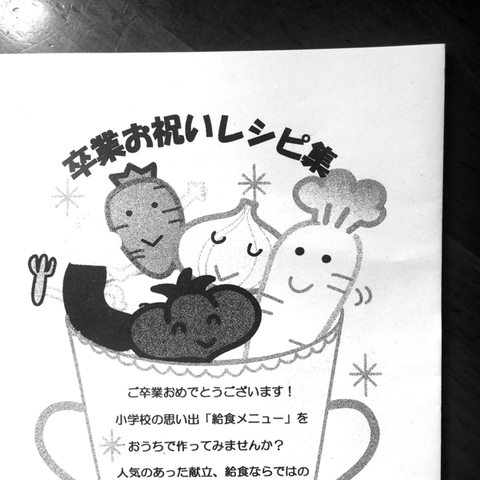 卒業お祝いレシピ集
ご卒業おめでとうございます！
小学校の思い出「給食メニュー」を
おうちで作ってみませんか？
人気のあった献立、給食ならではの